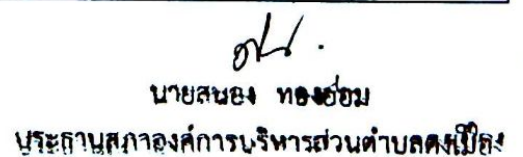 นายสนอง ทองอ่อม
ประธานสภาองค์การบริหารส่วนตำบลดงเมือง